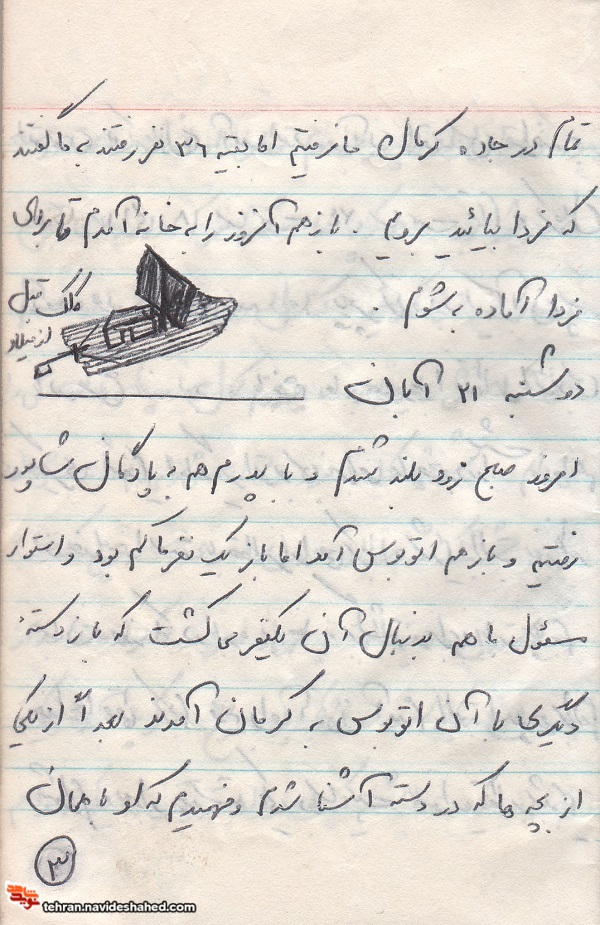 تمام در جاده کرمان ما نرفتیم اما بقیه ۳۶ نفر رفتند به ما گفتند
که فردا بیائید برویم . باز هم آنروز را به خانه آمدم تا برای
فردا آماده بشوم .
کلک قبل
از میلاد
دوشنبه ۲۱ آبان
امروز صبح زود بلند شدم و با پدرم هم به پادگان شاپور
رفتیم و باز هم اتوبوس آمد اما باز یک نفر ما کم بود و استوار
مسئول ما هم بدنبال آن یکنفر می گشت که باز دسته
دیگری با آن اتوبوس به کرمان آمدند بعداً از یکی
از بچه ها که در دسته آشنا شدم فهمیدم که او با همان
۳
نوید شاهد
tehran.navideshahed.com